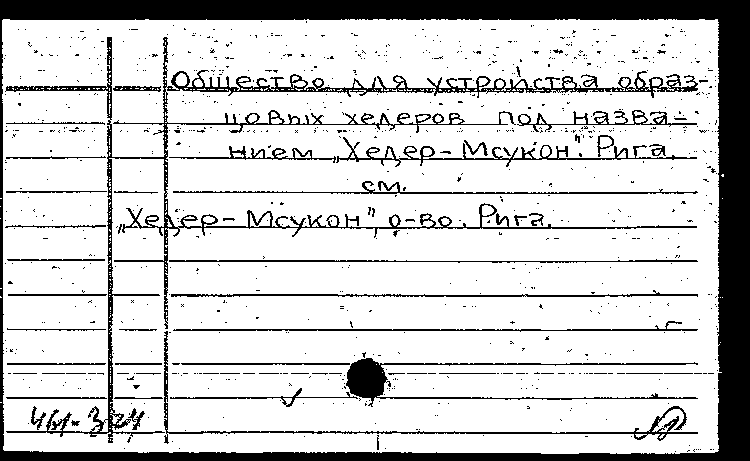 Общество для устройства образ-
цовых хедеров под назва-
нием „Хедер-Мсукон". Рига.
см.
„Хедер-Мсукон", о-во. Рига.